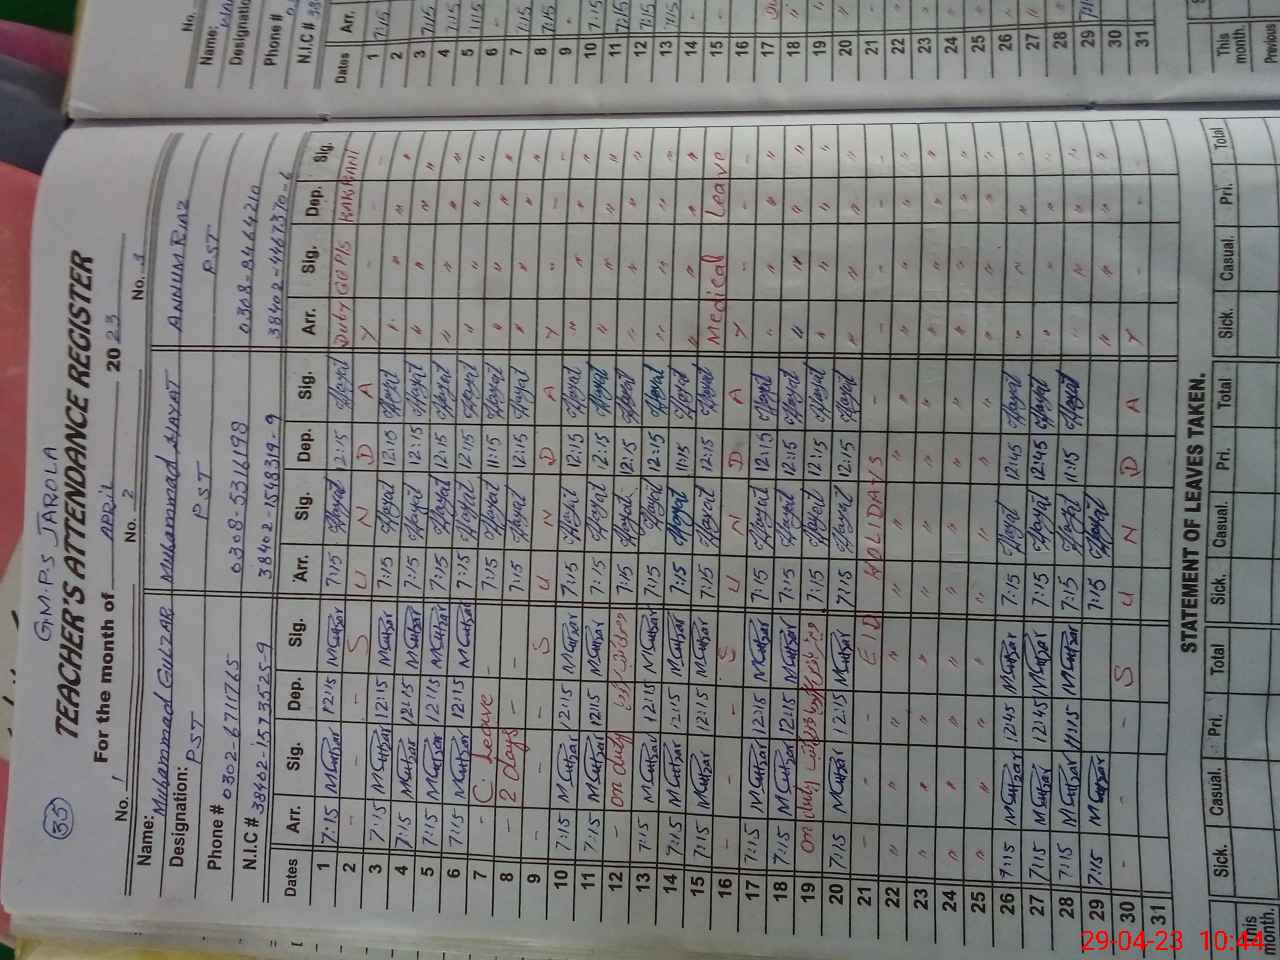 33
G.M.P.S JAROLA
TEACHER'S ATTENDANCE REGISTER
For the month of APRIL 20 23
No. 1 No. 2 No. 3
Name: Muhammad GULZAR Muhammad HAYAT ANNUM RIAZ
Designation: PST PST PST
Phone # 0302-6711765 0308-5316198 0308-8464210
N.I.C # 38402-1573525-9 38402-1548319-9 38402-4467370-6
Dates Arr. Sig. Dep. Sig. Arr. Sig. Dep. Sig. Arr. Sig. Dep. Sig.
1 7:15 12:15 7:15 Hayat 12:15 Hayat Duty GGPS
2 - - - S U N D A Y - - -
3 7:15 12:15 7:15 Hayat 12:15 Hayat " " " "
4 7:15 12:15 7:15 Hayat 12:15 Hayat " " " "
5 7:15 12:15 7:15 Hayat 12:15 Hayat " " " "
6 7:15 12:15 7:15 Hayat 12:15 Hayat " " " "
7 - C. Leave - 7:15 Hayat 11:15 Hayat " " " "
8 - 2 days - 7:15 Hayat 12:15 Hayat " " " "
9 - - - S U N D A Y - - -
10 7:15 12:15 7:15 Hayat 12:15 Hayat " " " "
11 7:15 12:15 7:15 Hayat 12:15 Hayat " " " "
12 - on duty 7:15 Hayat 12:15 Hayat " " " "
13 7:15 12:15 7:15 Hayat 12:15 Hayat " " " "
14 7:15 12:15 7:15 Hayat 11:15 Hayat " " " "
15 7:15 12:15 7:15 Hayat 12:15 Hayat Medical Leave
16 - - - S U N D A Y - - -
17 7:15 12:15 7:15 Hayat 12:15 Hayat " " " "
18 7:15 12:15 7:15 Hayat 12:15 Hayat " " " "
19 on duty 7:15 Hayat 12:15 Hayat " " " "
20 7:15 12:15 7:15 Hayat 12:15 Hayat " " " "
21 - - - EID HOLIDAYS - - - - -
22 " " " " " " " " " " " "
23 " " " " " " " " " " " "
24 " " " " " " " " " " " "
25 " " " " " " " " " " " "
26 7:15 12:45 7:15 Hayat 12:45 Hayat " " " "
27 7:15 12:45 7:15 Hayat 12:45 Hayat " " " "
28 7:15 11:15 7:15 Hayat 11:15 Hayat " " " "
29 7:15 7:15 Hayat " " " "
30 - - - S U N D A Y
31
STATEMENT OF LEAVES TAKEN.
Sick. Casual. Pri. Total Sick. Casual. Pri. Total Sick. Casual. Pri. Total
This month.
No.
Name:
Designation
Phone #
N.I.C #
Dates Arr.
1 7:15
2
3 7:15
4 7:15
5 1:15
6 -
7 7:15
8 7:15
9 -
10 7:15
11 7:15
12 7:15
13 7:15
14
15
16
17
18
19
20
21
22
23
24
25
26
27
28
29
30
31
This month.
Previous
29-04-23 10:44